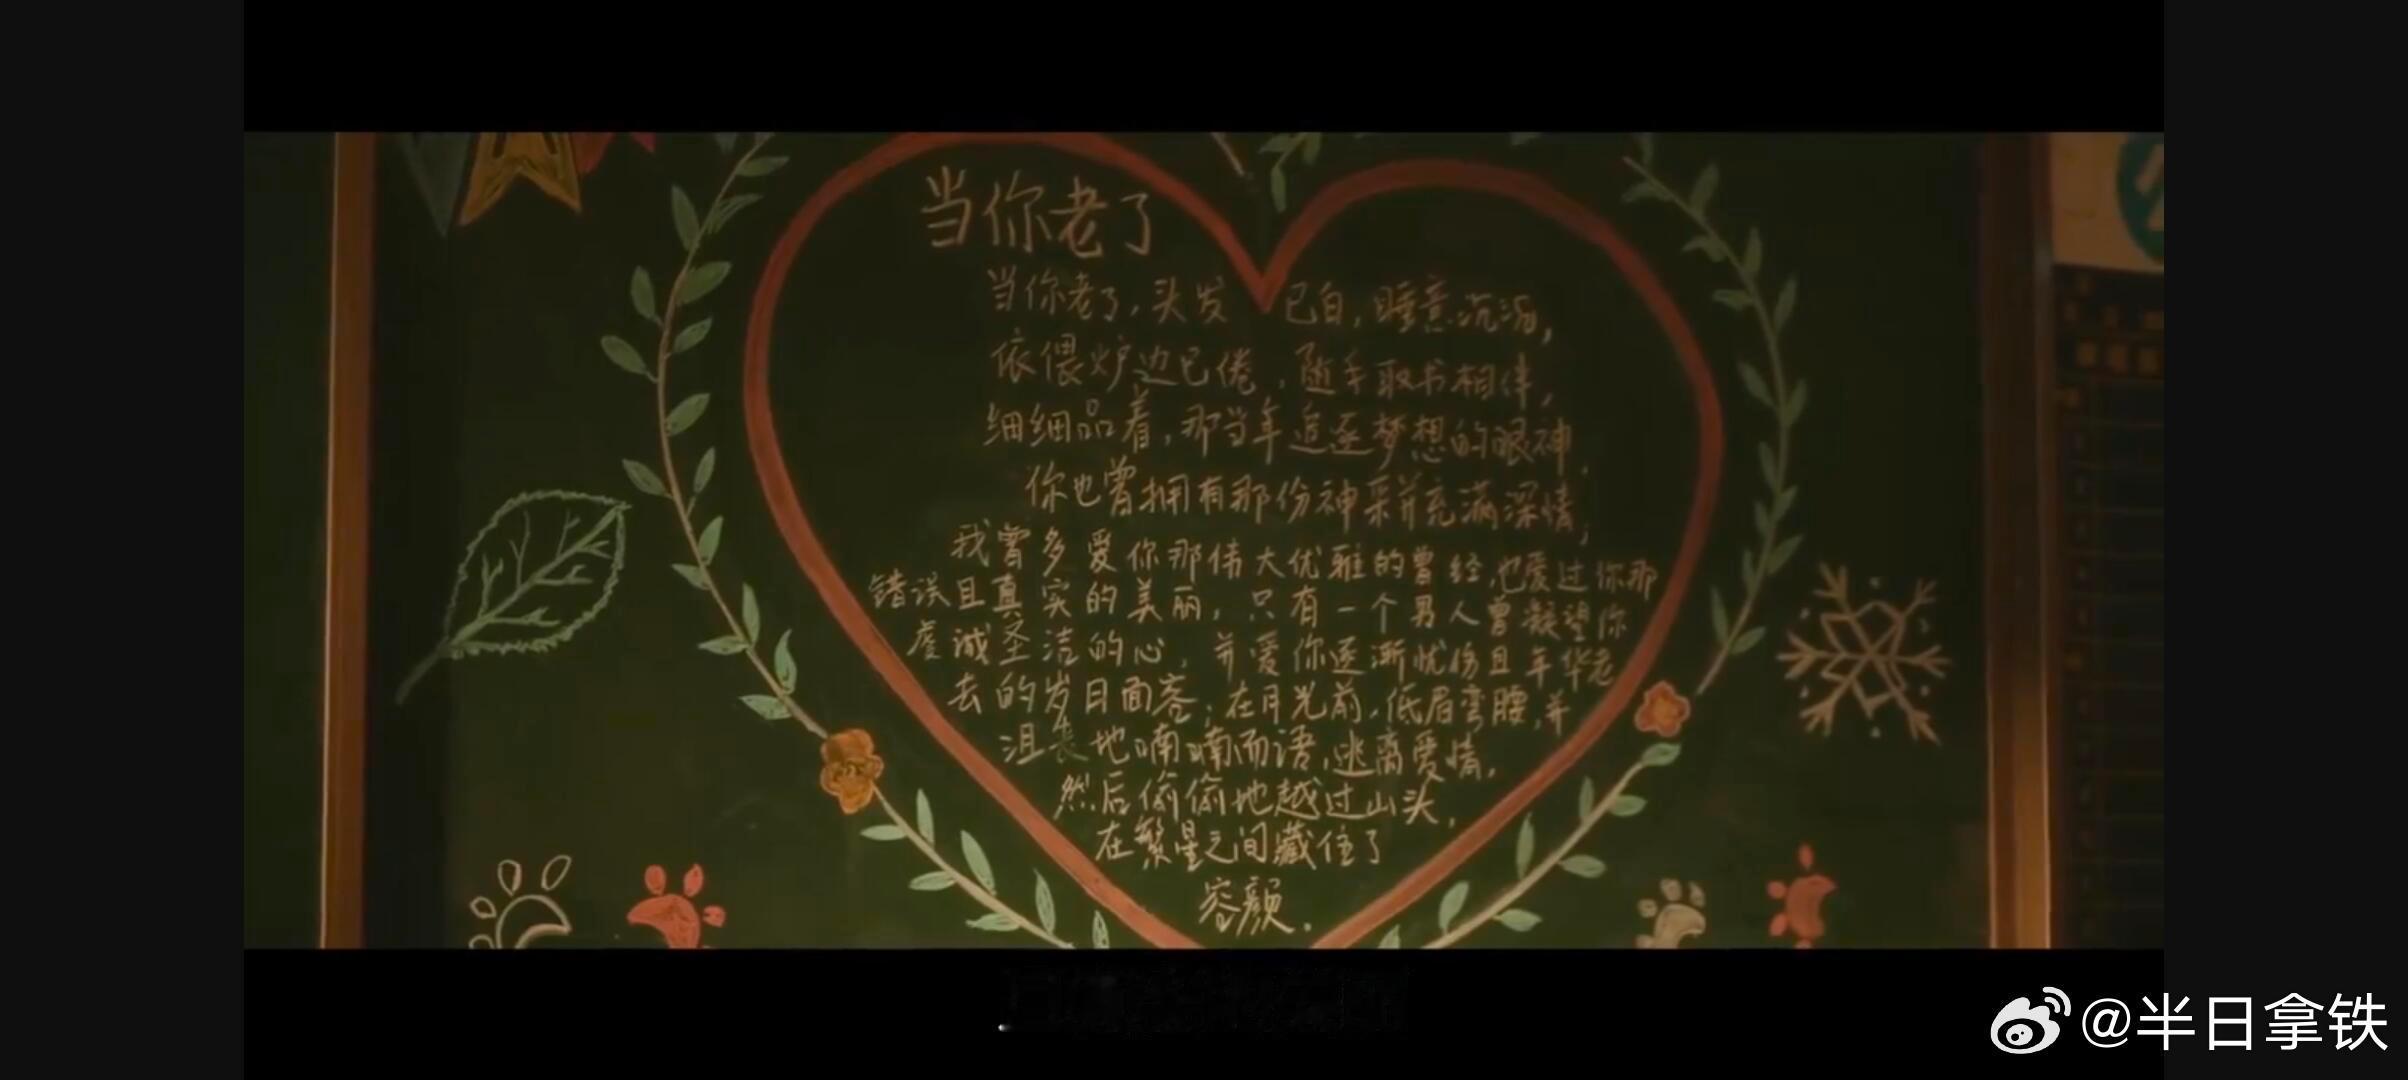 当你老了
当你老了，头发 已白，睡意沉沉，
依偎炉边已倦，随手取书相伴，
细细品着，那当年追逐梦想的眼神，
你也曾拥有那份神采并充满深情；
我曾多爱你那伟大优雅的曾经，也爱过你那
错误且真实的美丽，只有一个男人曾凝望你
虔诚圣洁的心，并爱你逐渐忧伤且年华老
去的岁月面容；在月光前，低眉弯腰，并
沮丧地喃喃而语，逃离爱情，
然后偷偷地越过山头，
在繁星之间藏住了
容颜.
@半日拿铁